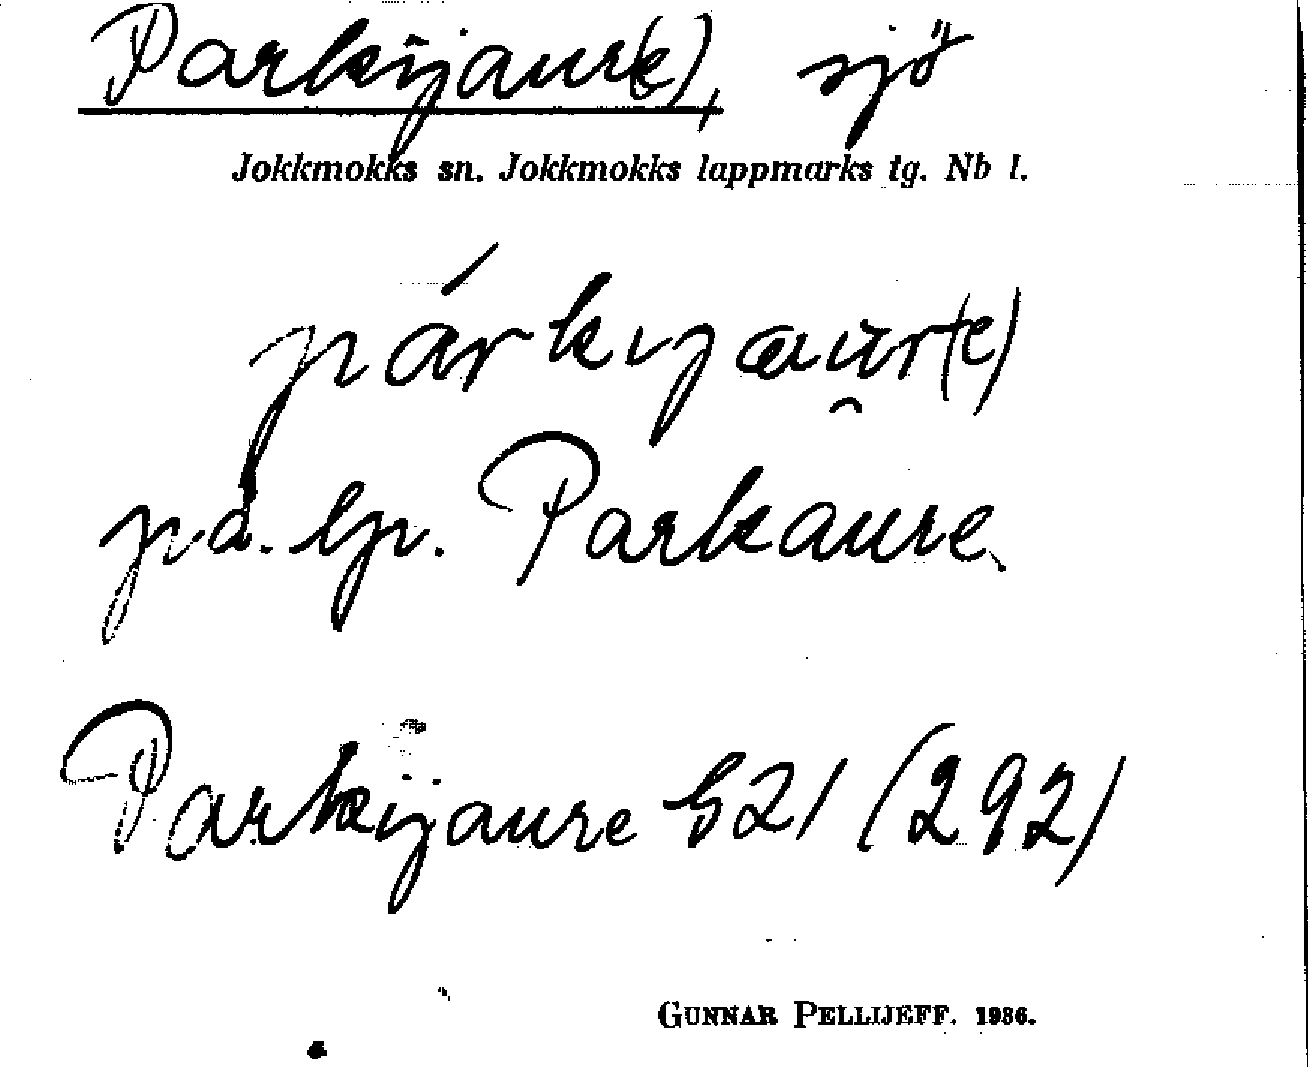 Parkijaur(e), sjö
Jokkmokks sn. Jokkmokks lappmarks tg. Nb l.
párkijau̯r(e)
på. lp. Parkaure.
Parkijaure 521 (292)
GUNNAR PELLIJEFF. 1936.